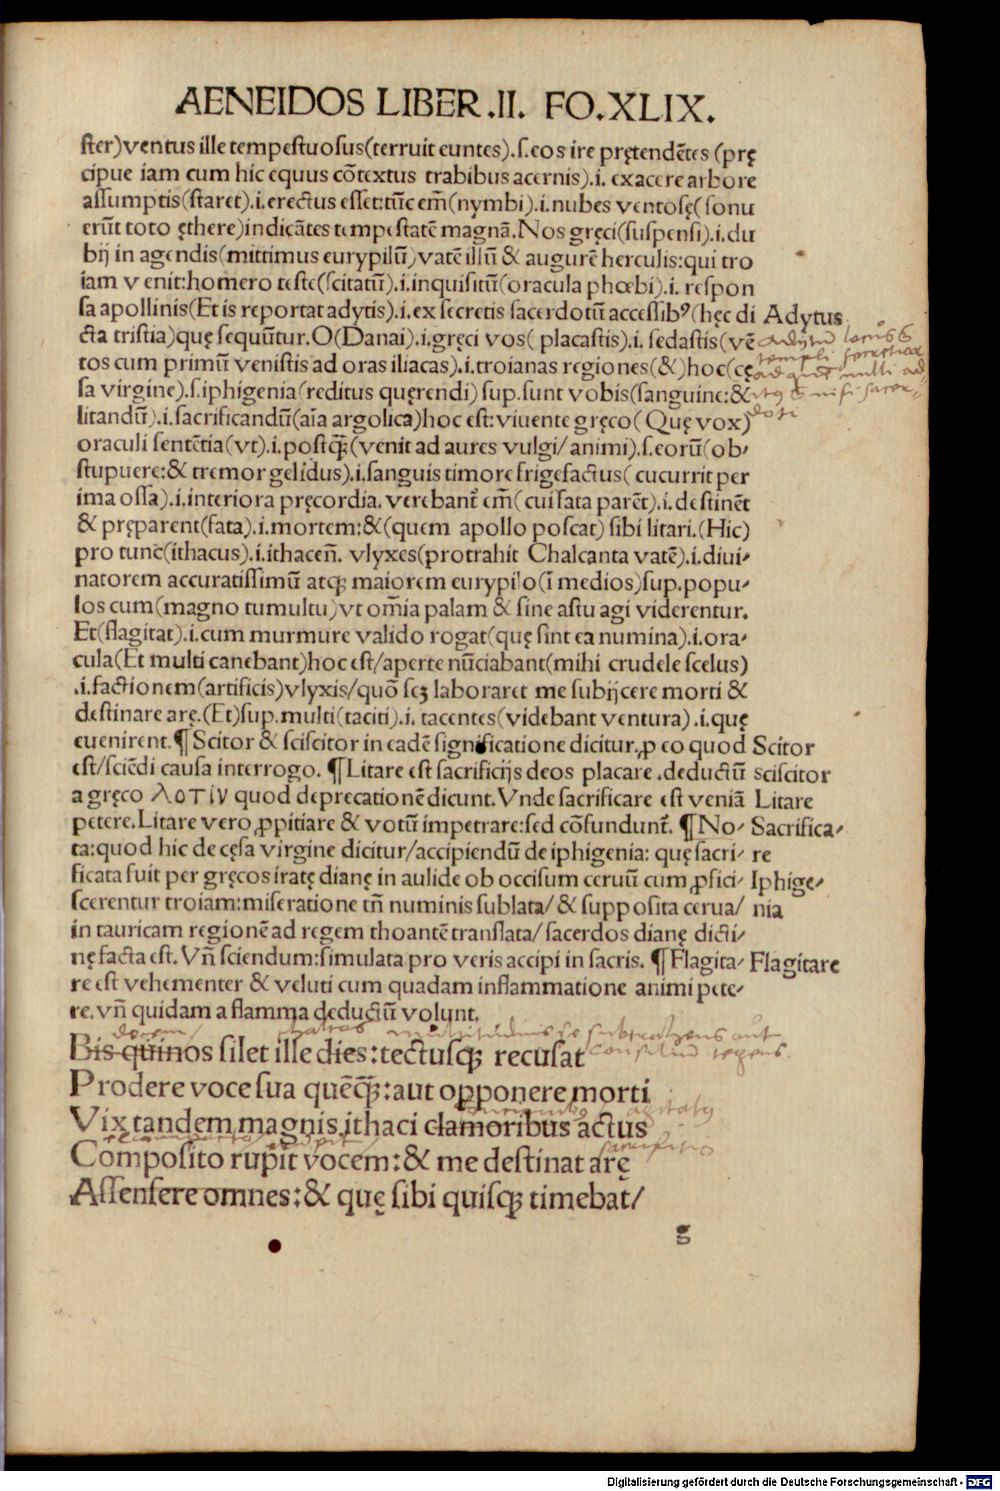 AENEIDOS LIBER .II. FO.XLIX.
ster)ventus ille tempestuosus(terruit euntes).s.eos ire prętendẽtes (prę
cipue iam cum hic equus cõtextus trabibus acernis).i. exacere arbore
assumptis(staret).i.erectus esset:tũc em̃(nymbi).i.nubes ventosę(sonu
erũt toto ęthere)indicãtes tempestatẽ magnã.Nos gręci(suspensi).i.du
bij in agendis(mittimus eurypilũ)vatẽ illũ & augurẽ herculis:qui tro
iam venit:homero teste(scitatũ).i.inquisitũ(oracula phœbi).i. respon
sa apollinis(Et is reportat adytis).i.ex secretis sacerdotũ accessibꝰ(hęc di Adytus
cta tristia)quę sequũtur.O(Danai).i.gręci vos( placastis).i. sedastis(vẽ
tos cum primũ venistis ad oras iliacas).i.troianas regiones(&)hoc(cę
sa virgine).s.iphigenia(reditus quęrendi) sup.sunt vobis(sanguine:&
litandũ).i.sacrificandũ(aĩa argolica)hoc est: viuente gręco( Quę vox)
oraculi sentẽtia(vt).i.postq̃ꝫ(venit ad aures vulgi/ animi).s.eorũ(ob/
stupuere:& tremor gelidus).i.sanguis timore frigefactus( cucurrit per
ima ossa).i.interiora pręcordia. verebant̃ em̃( cui fata parẽt).i.destinẽt
& pręparent(fata).i.mortem:&(quem apollo poscat) sibi litari.(Hic)
pro tunc(ithacus).i.ithaceñ. vlyxes(protrahit Chalcanta vatẽ).i.diui/
natorem accuratissimũ atqꝫ maiorem eurypilo(ĩ medios)sup.popu/
los cum(magno tumultu)vt om̃ia palam & sine astu agi viderentur.
Et(flagitat).i.cum murmure valido rogat(quę sint ea numina).i.ora/
cula(Et multi canebant)hoc est/aperte nũciabant(mihi crudele scelus)
.i.factionem(artificis)vlyxis/quõ scꝫ laboraret me subijcere morti &
destinare arę.(Et)sup.multi(taciti).i. tacentes(videbant ventura).i.quę
euenirent.¶Scitor & sciscitor in eadẽ significatione dicitur.ꝓ eo quod Scitor
est/sciẽdi causa interrogo. ¶Litare est sacrificijs deos placare .deductũ sciscitor
a gręco λοτιν quod deprecationẽ dicunt.Vnde sacrificare est veniã Litare
petere.Litare vero ꝓpitiare & votũ impetrare:sed cõfundunt̃. ¶No/ Sacrifica/
ta:quod hic de cęsa virgine dicitur/accipiendũ de iphigenia: quę sacri/ re
ficata fuit per gręcos iratę dianę in aulide ob occisum ceruũ cum ꝓfici/ Iphige/
scerentur troiam:miseratione tñ numinis sublata/ & supposita cerua/ nia
in tauricam regionẽ ad regem thoantẽ translata/ sacerdos dianę dicti/
nę facta est. Vñ sciendum:simulata pro veris accipi in sacris. ¶Flagita/ Flagitare
re est vehementer & veluti cum quadam inflammatione animi pete/
re.vñ quidam a flamma deductũ volunt.
Bis quinos silet ille dies:tectusqꝫ recusat
Prodere voce sua quẽq̃ꝫ:aut opponere morti
Vix tandem magnis ithaci clamoribus actus
Composito rupit vocem:& me destinat arę
Assensere omnes:& quę sibi quisqꝫ timebat/
g
Digitalisierung gefördert durch die Deutsche Forschungsgemeinschaft - DFG